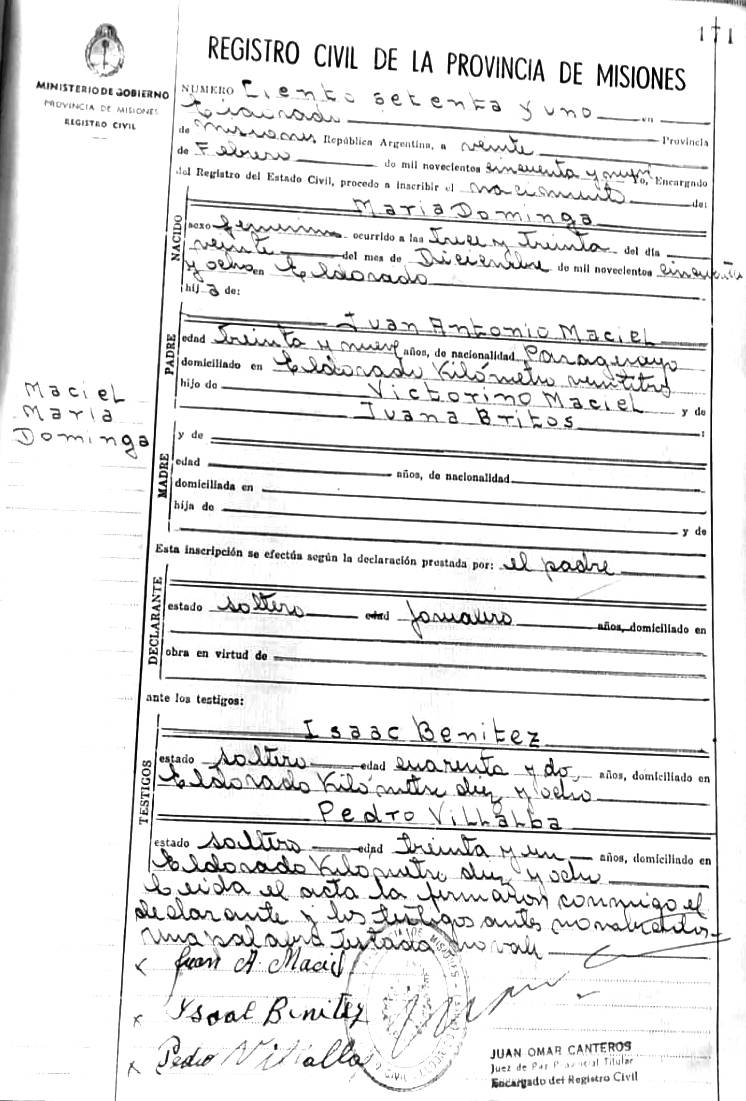 171
REGISTRO CIVIL DE LA PROVINCIA DE MISIONES
MINISTERIO DE GOBIERNO
PROVINCIA DE MISIONES
REGISTRO CIVIL
NUMERO Ciento setenta y uno en
Eldorado Provincia
de Misiones República Argentina, a veinte
de Febrero de mil novecientos cincuenta y nueve Yo, Encargado
del Registro del Estado Civil, procedo a inscribir el nacimiento de:
NACIDO
Maria Dominga
sexo femenino ocurrido a las trece y treinta del día
veinte del mes de Diciembre de mil novecientos cincuenta
y ocho en Eldorado
hija de:
PADRE
Juan Antonio Maciel
edad treinta y nueve años, de nacionalidad Paraguayo
domiciliado en Eldorado Kilómetro veintitres
hijo de Victorino Maciel y de
Juana Britos :
Maciel
Maria
Dominga
MADRE
y de
edad años, de nacionalidad
domiciliada en
hija de
y de
Esta inscripción se efectúa según la declaración prestada por: el padre
DECLARANTE
estado soltero edad jornalero años, domiciliado en
obra en virtud de
ante los testigos:
TESTIGOS
Isaac Benitez
estado soltero edad cuarenta y dos años, domiciliado en
Eldorado Kilómetro diez y ocho
Pedro Villalba
estado soltero edad treinta y un años, domiciliado en
Eldorado Kilómetro diez y ocho
Leida el acta la firmaron conmigo el
declarante y los testigos antes nombrados
Una palabra testada no vale
x Juan A Maciel
x Ysaal Benitez
x Pedro Villalba
JUAN OMAR CANTEROS
Juez de Paz Provincial Titular
Encargado del Registro Civil